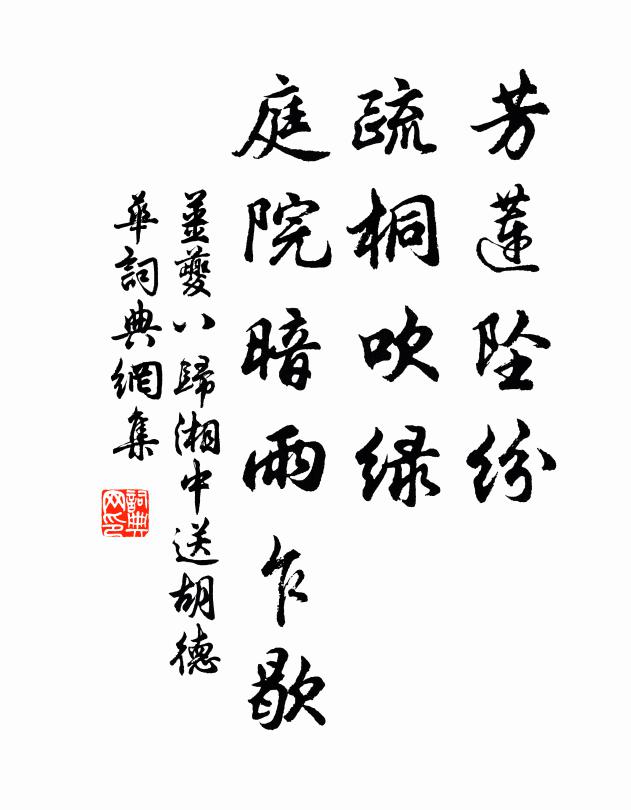 芳蓮坠紛
疏桐吹緑
庭院暗雨乍歇
姜夔八歸湘中送胡德
華詞典網集
詞典
网印